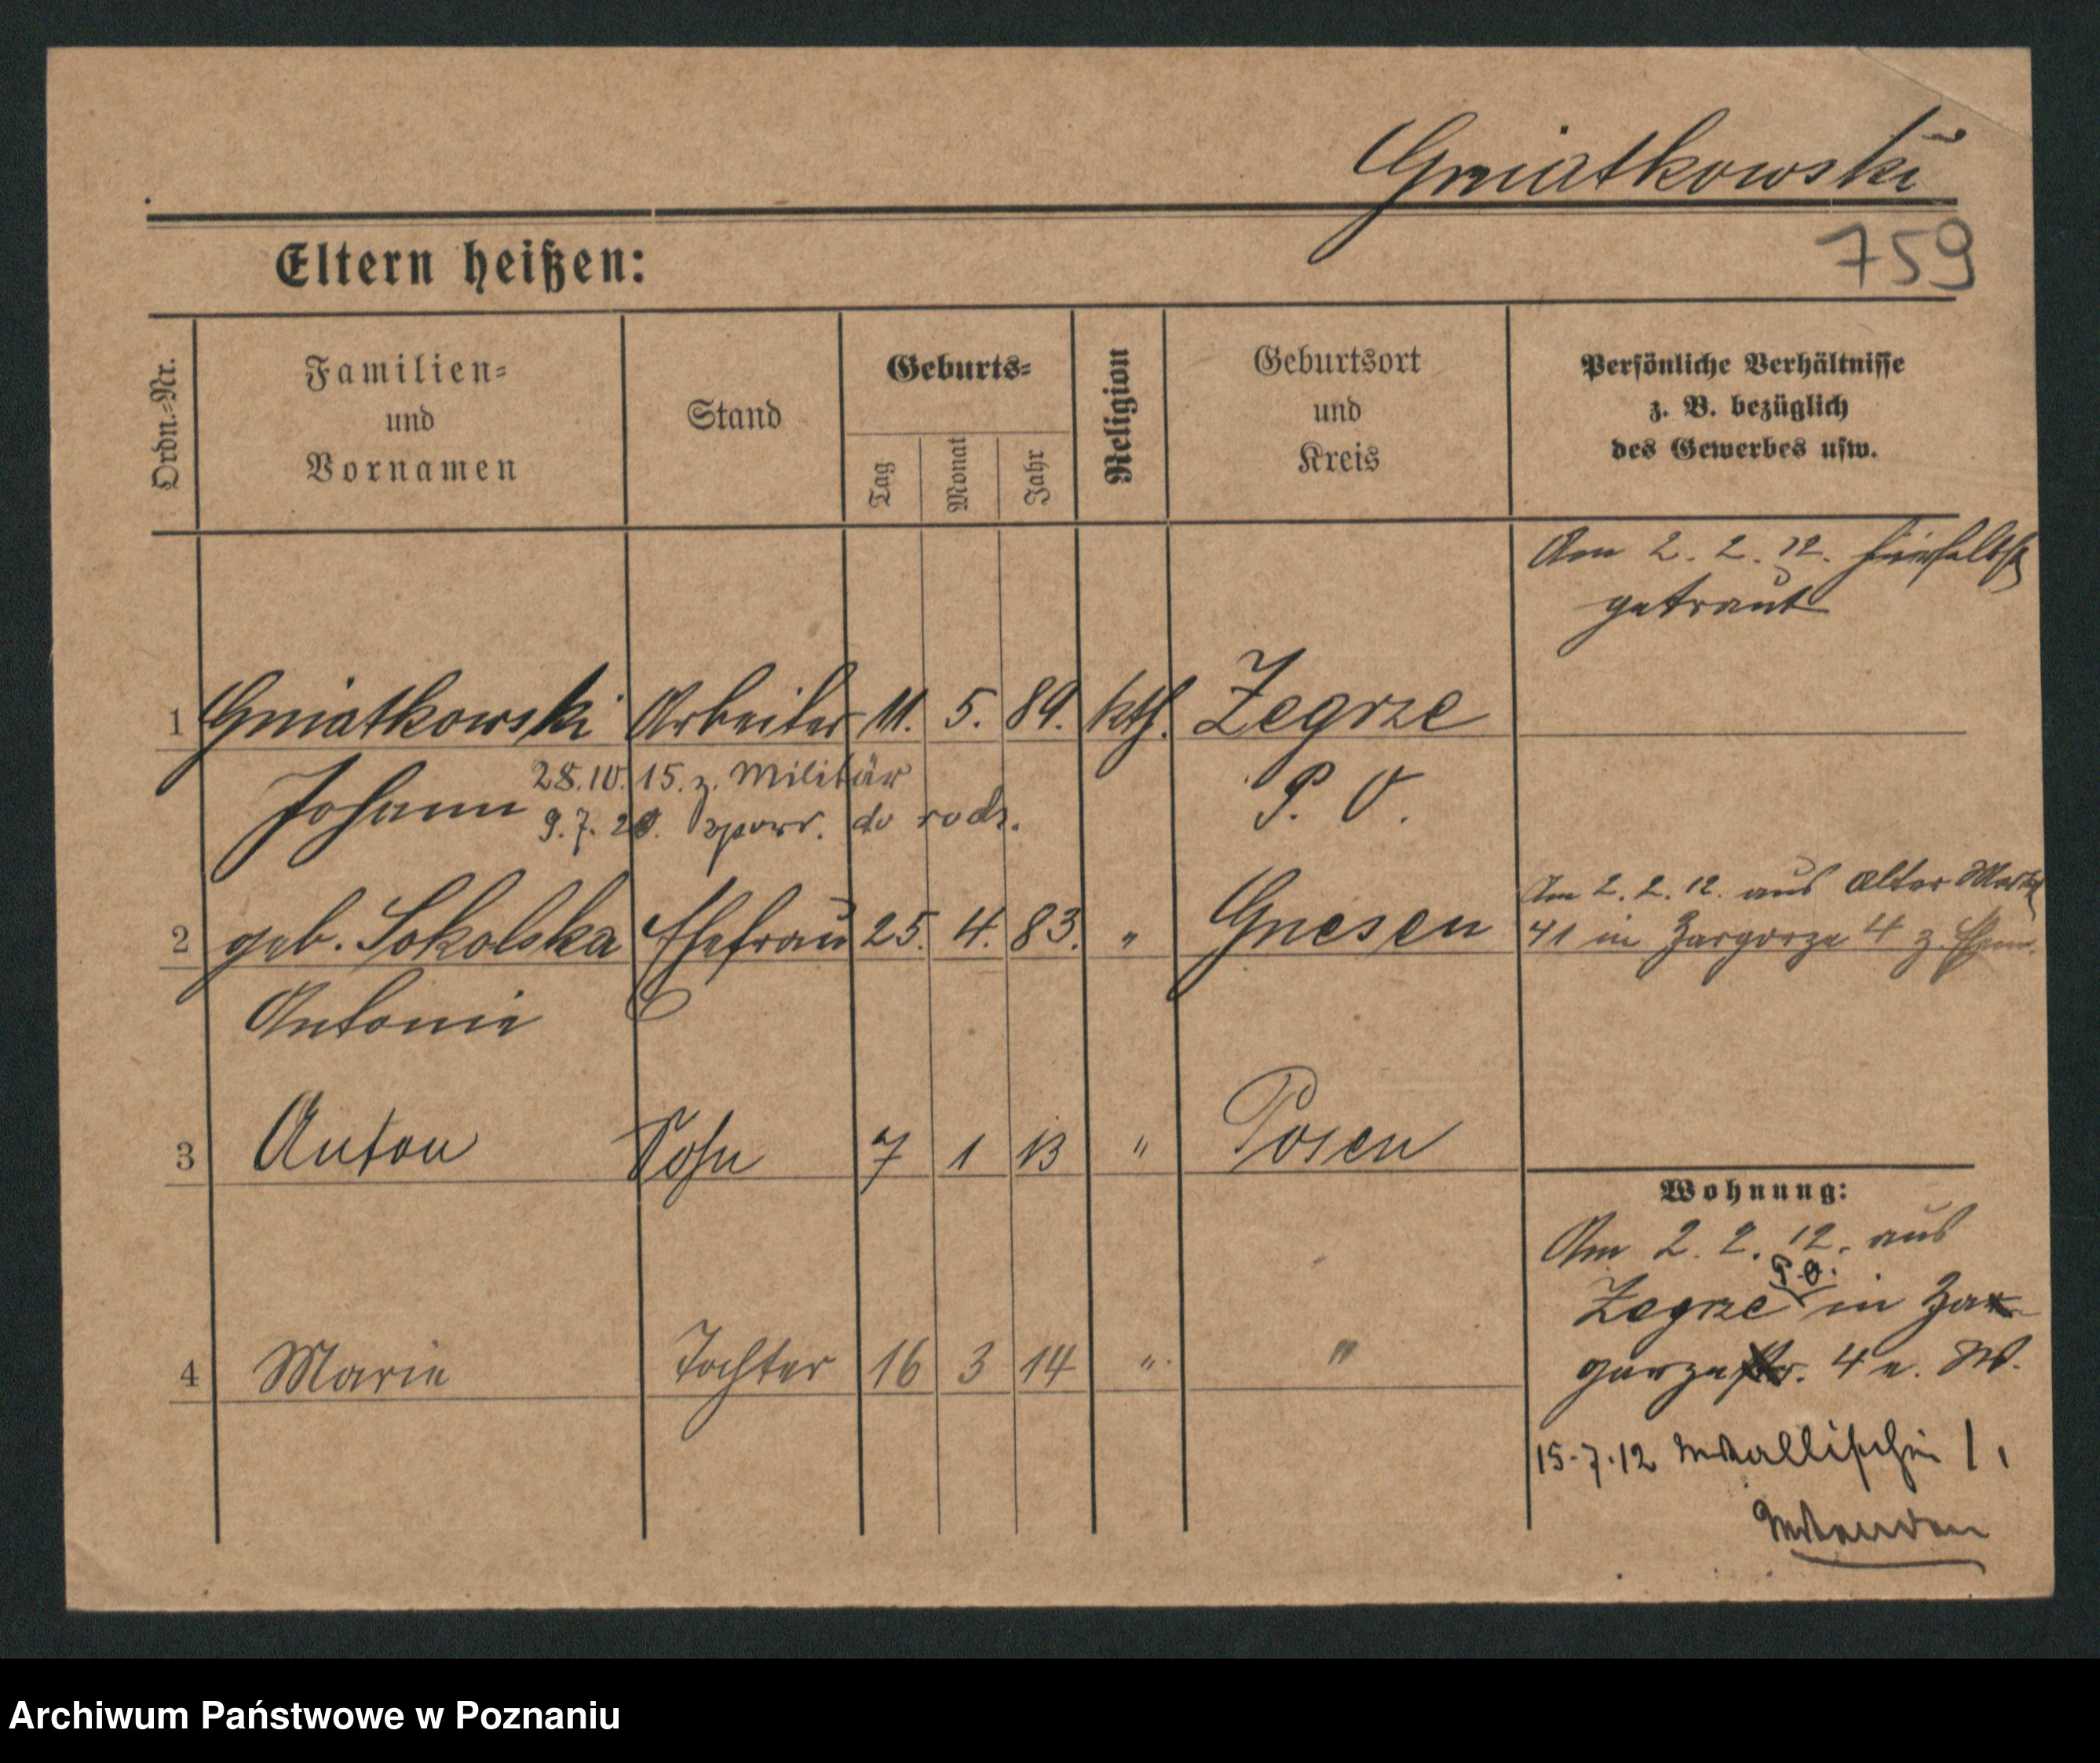 Gniatkowski
759
Eltern heißen:
Ordn.=Nr.
Familien=
und
Vornamen
Stand
Geburts=
Tag
Monat
Jahr
Religion
Geburtsort
und
Kreis
Persönliche Verhältnisse
z. B. bezüglich
des Gewerbes usw.
Am 2. 2. 12. hierselbst
getraut
1 Gniatkowski Arbeiter 11. 5. 89. kth. Zegrze
28.10.15. z. Militär
Johann P. O.
9.7.20. do rodz.
2 geb. Sokolska Ehefrau 25. 4. 83. " Gnesen
Antonie
Am 2. 2. 12. aus Alter Markt
41 in Zagorze 4 z. Ehem.
3 Anton Sohn 7 1 13 " Posen
4 Marie Tochter 16 3 14 " "
Wohnung:
Am 2. 2. 12. aus
P. O.
Zegrze in Za
gorze 4 e. W.
15.7.12 Wallischei 1,
Archiwum Państwowe w Poznaniu